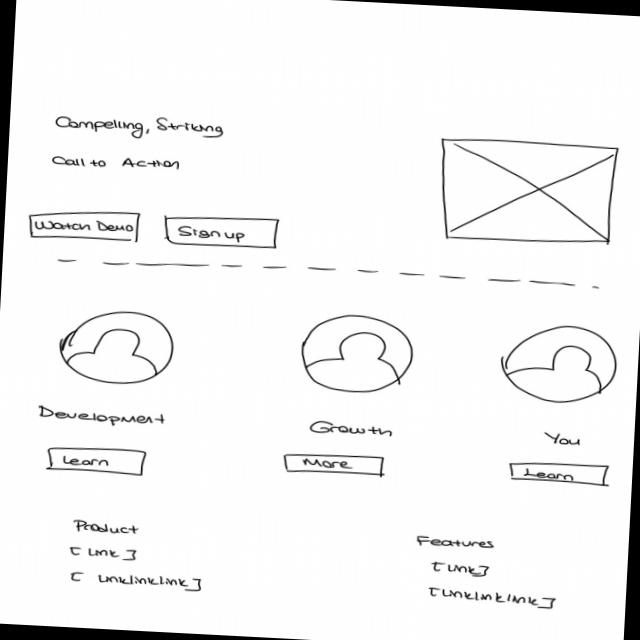 Compelling, Striking
Call to Action
Watch Demo
Sign up
Development
Growth
You
Learn
More
Learn
Product
[Link]
[Linklinklink]
Features
[Link]
[Linklinklink]